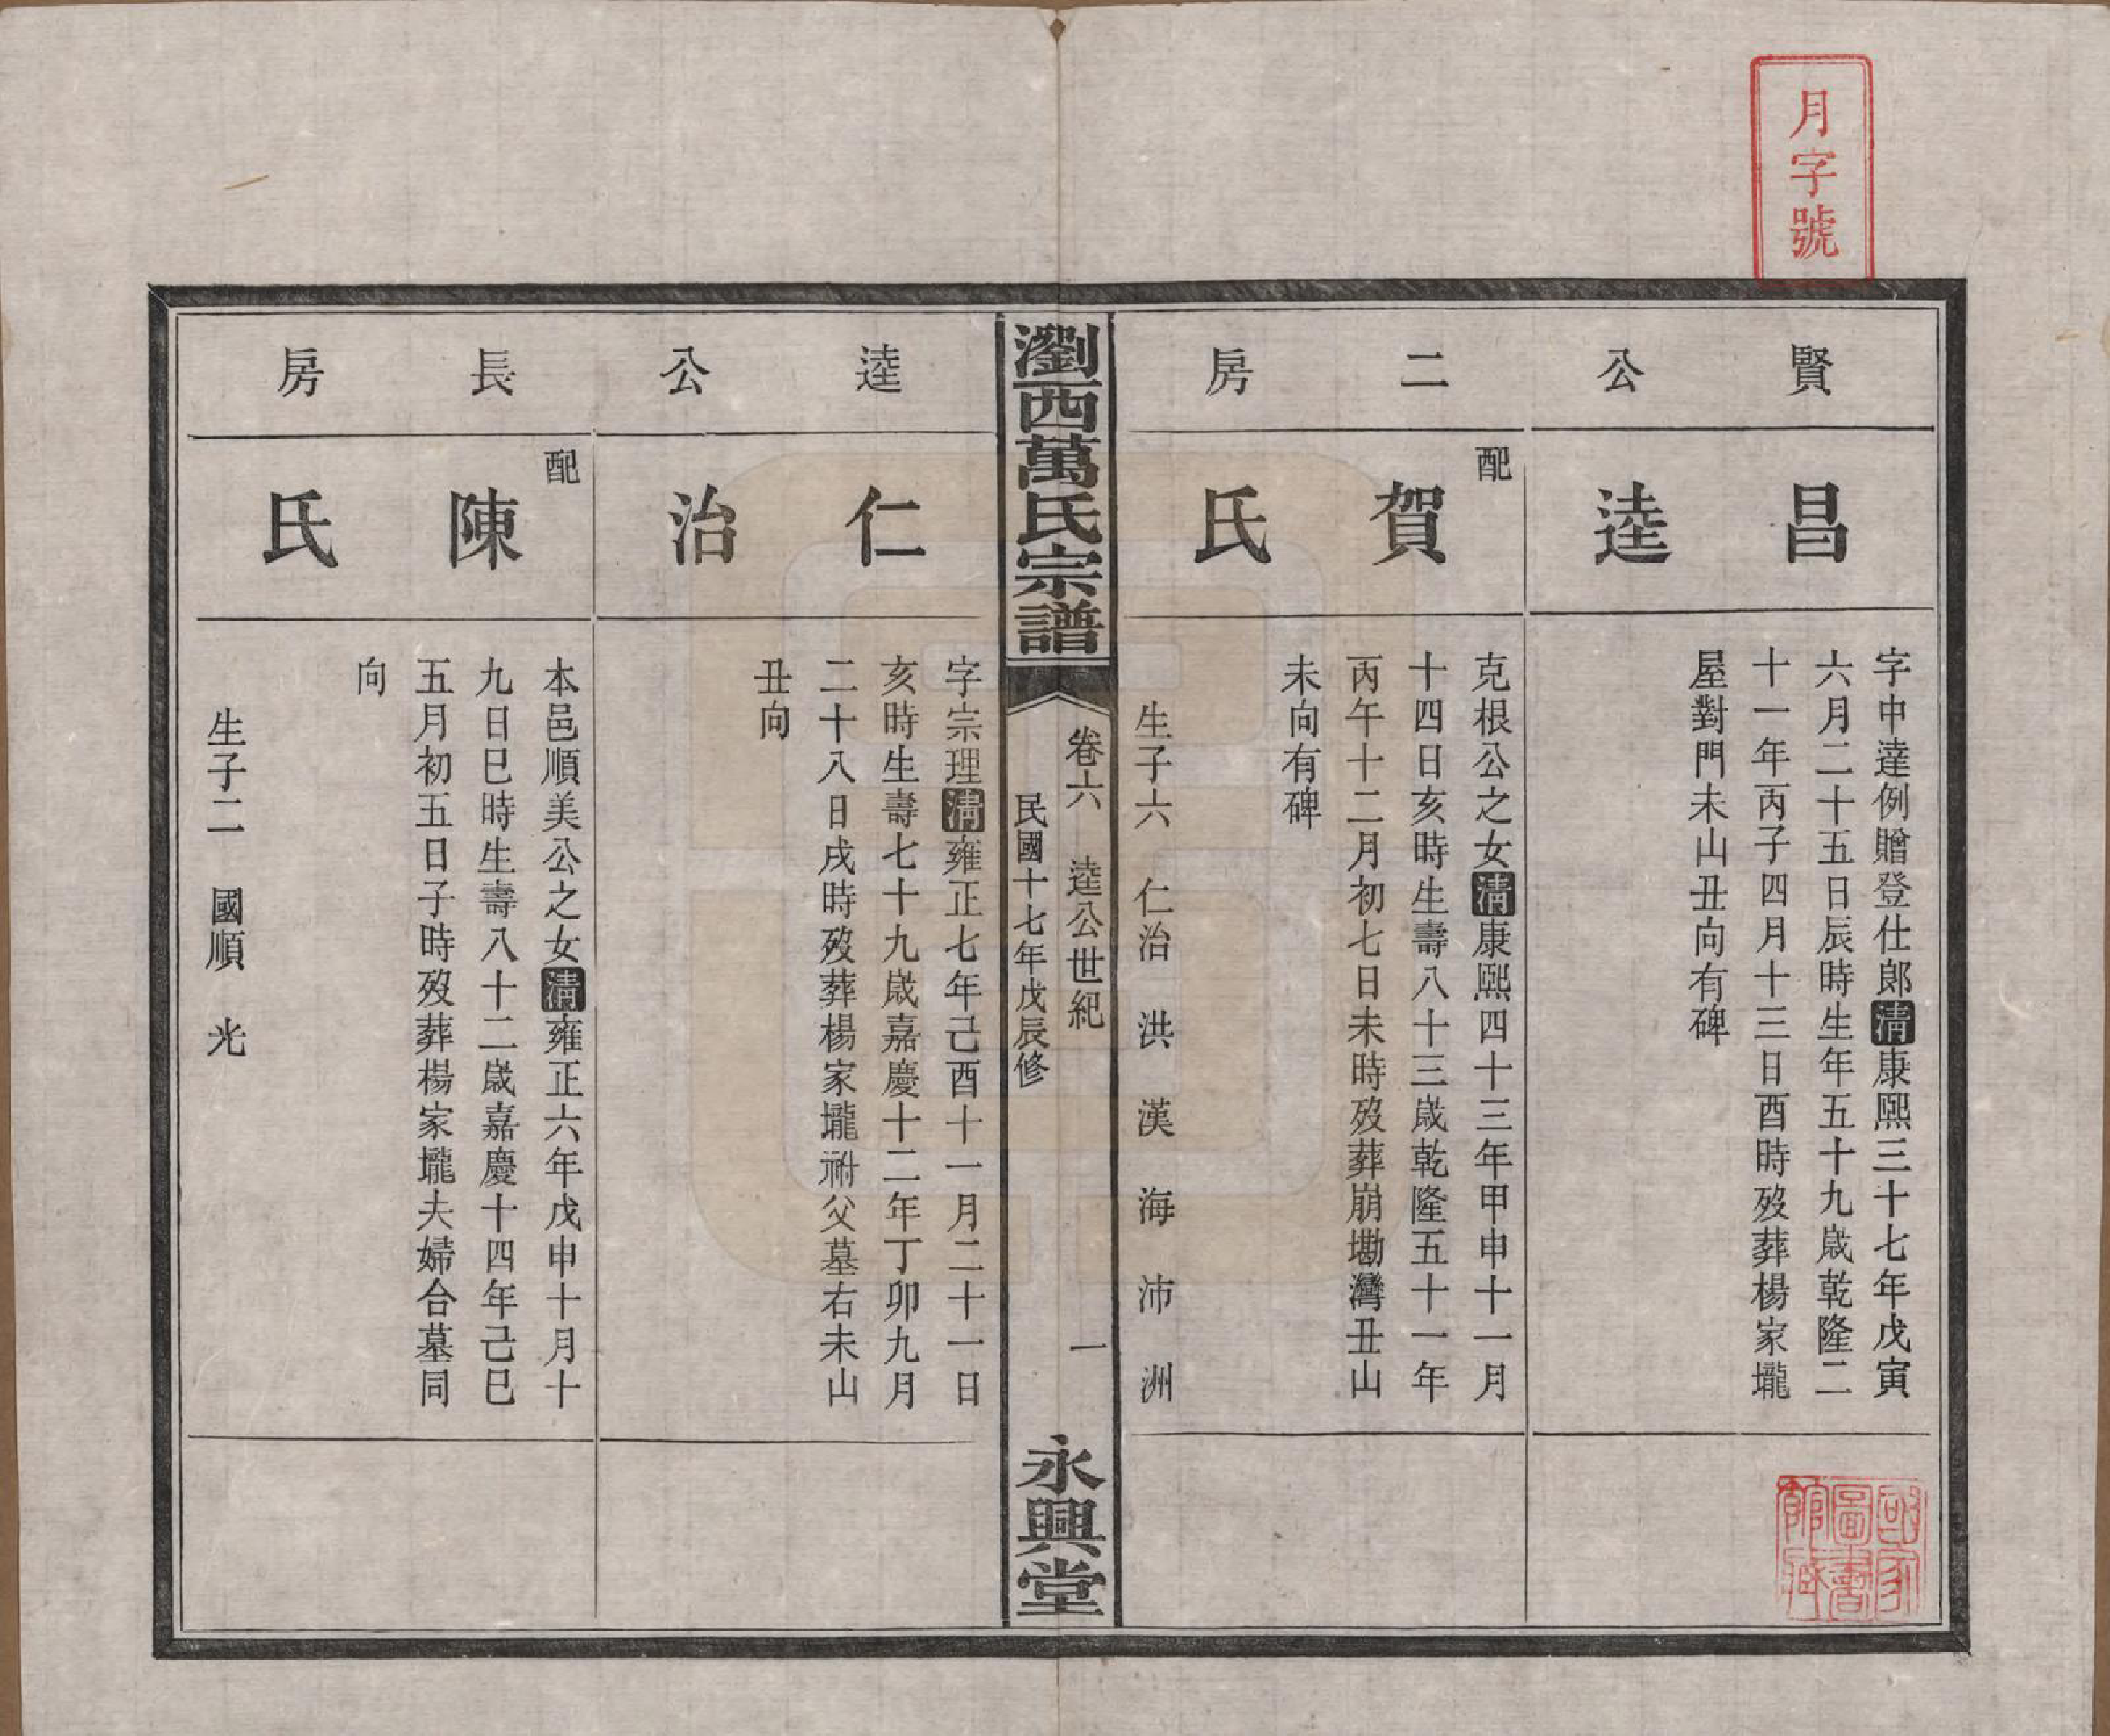 月字號
賢公二房
昌逵
字申達例贈登仕郎清康熙三十七年戊寅
六月二十五日辰時生年五十九歲乾隆二
十一年丙子四月十三日酉時歿葬楊家壠
屋對門未山丑向有碑
配
賀氏
克根公之女清康熙四十三年甲申十一月
十四日亥時生壽八十三歲乾隆五十一年
丙午十二月初七日未時歿葬崩墈灣丑山
未向有碑
生子六 仁治 洪 漢 海 沛 洲
瀏西萬氏宗譜
卷六 逵公世紀 一
民國十七年戊辰修
永興堂
逵公長房
仁治
字宗理清雍正七年己酉十一月二十一日
亥時生壽七十九歲嘉慶十二年丁卯九月
二十八日戌時歿葬楊家壠祔父墓右未山
丑向
配
陳氏
本邑順美公之女清雍正六年戊申十月十
九日巳時生壽八十二歲嘉慶十四年己巳
五月初五日子時歿葬楊家壠夫婦合墓同
向
生子二 國順 光
國家
圖書
館藏